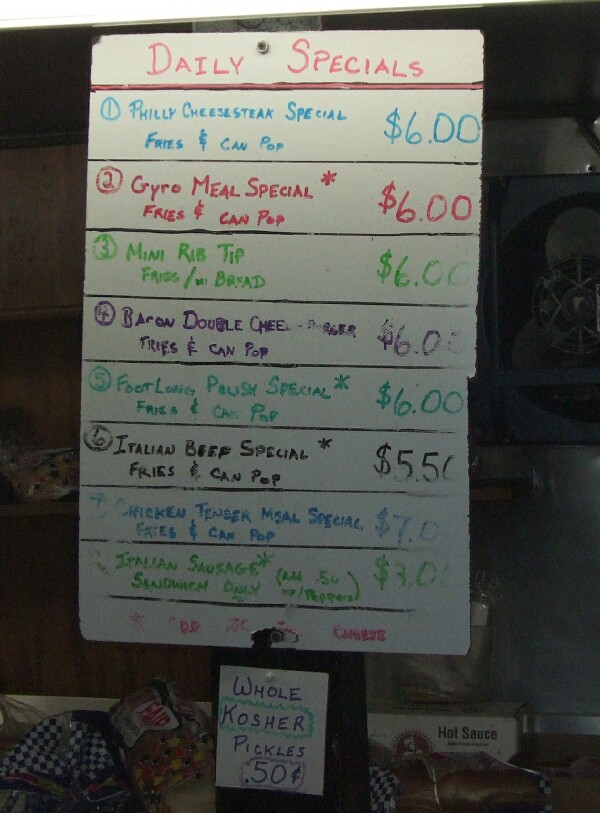 DAILY SPECIALS
① PHILLY CHEESESTEAK SPECIAL $6.00
FRIES & CAN POP
② GYRO MEAL SPECIAL * $6.00
FRIES & CAN POP
③ MINI RIB TIP $6.00
FRIES /W/ BREAD
④ BACON DOUBLE $6.0
FRIES & CAN POP
⑤ FOOTLONG POLISH SPECIAL * $6.00
FRIES & CAN POP
⑥ ITALIAN BEEF SPECIAL * $5.50
FRIES & CAN POP
7 CHICKEN TENDER MEAL SPECIAL $7.0
FRIES & CAN POP
ITALIAN SAUSAGE * $3.00
SANDWICH ONLY (ADD .50 w/PEPPERS)
* ADD .50 CHEESE
WHOLE
KOSHER
PICKLES
.50¢
Hot Sauce